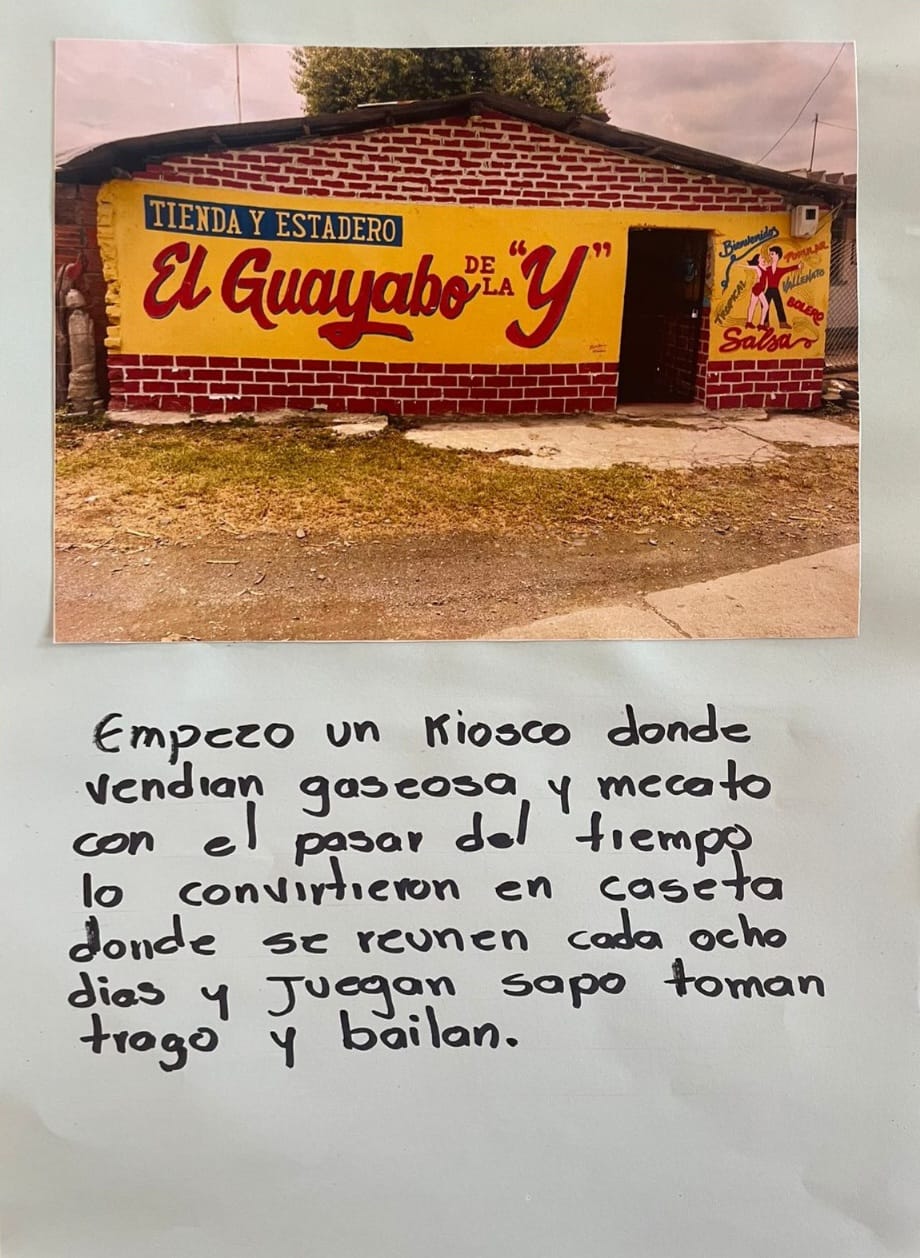 TIENDA Y ESTADERO
El Guayabo DE LA "Y"
Bienvenidos
POPULAR
TROPICAL
VALLENATO
BOLERO
Salsa
Empezo un Kiosco donde
vendian gaseosa y mecato
con el pasar del tiempo
lo convirtieron en caseta
donde se reunen cada ocho
dias y Juegan sapo toman
trago y bailan.